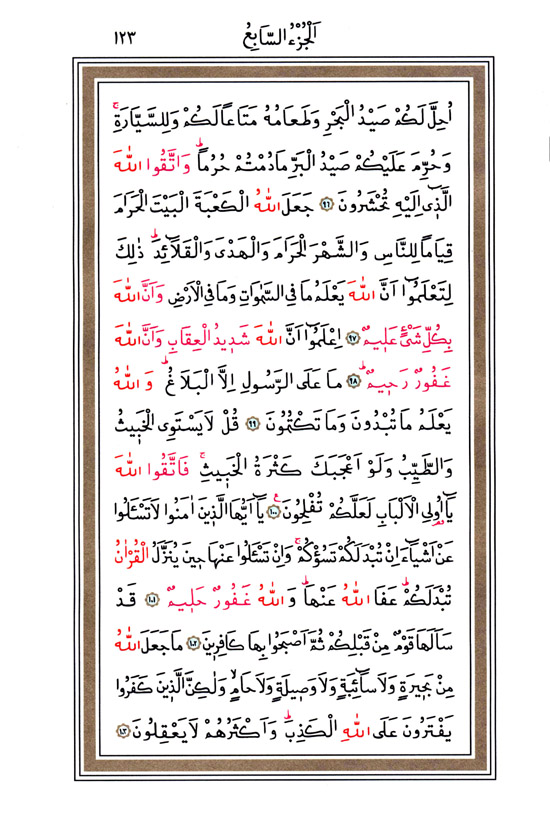 اَلْجُزْءُ السَّابِعُ ١٢٣
اُحِلَّ لَكُمْ صَيْدُ الْبَحْرِ وَطَعَامُهُ مَتَاعًا لَكُمْ وَلِلسَّيَّارَةِۚ
وَحُرِّمَ عَلَيْكُمْ صَيْدُ الْبَرِّ مَا دُمْتُمْ حُرُمًاۜ وَاتَّقُوا اللّٰهَ
الَّذ۪ٓي اِلَيْهِ تُحْشَرُونَ ﴿٩٦﴾ جَعَلَ اللّٰهُ الْكَعْبَةَ الْبَيْتَ الْحَرَامَ
قِيَامًا لِلنَّاسِ وَالشَّهْرَ الْحَرَامَ وَالْهَدْيَ وَالْقَلَٓائِدَۜ ذٰلِكَ
لِتَعْلَمُٓوا اَنَّ اللّٰهَ يَعْلَمُ مَا فِي السَّمٰوَاتِ وَمَا فِي الْاَرْضِ وَاَنَّ اللّٰهَ
بِكُلِّ شَيْءٍ عَل۪يمٌ ﴿٩٧﴾ اِعْلَمُٓوا اَنَّ اللّٰهَ شَد۪يدُ الْعِقَابِ وَاَنَّ اللّٰهَ
غَفُورٌ رَح۪يمٌۜ ﴿٩٨﴾ مَا عَلَى الرَّسُولِ اِلَّا الْبَلَاغُۜ وَاللّٰهُ
يَعْلَمُ مَا تُبْدُونَ وَمَا تَكْتُمُونَ ﴿٩٩﴾ قُلْ لَا يَسْتَوِي الْخَب۪يثُ
وَالطَّيِّبُ وَلَوْ اَعْجَبَكَ كَثْرَةُ الْخَب۪يثِۚ فَاتَّقُوا اللّٰهَ
يَٓا اُو۬لِي الْاَلْبَابِ لَعَلَّكُمْ تُفْلِحُونَ۟ ﴿١٠٠﴾ يَٓا اَيُّهَا الَّذ۪ينَ اٰمَنُوا لَا تَسْـَٔلُوا
عَنْ اَشْيَٓاءَ اِنْ تُبْدَ لَكُمْ تَسُؤْكُمْۚ وَاِنْ تَسْـَٔلُوا عَنْهَا ح۪ينَ يُنَزَّلُ الْقُرْاٰنُ
تُبْدَ لَكُمْۜ عَفَا اللّٰهُ عَنْهَاۜ وَاللّٰهُ غَفُورٌ حَل۪يمٌ ﴿١٠١﴾ قَدْ
سَاَلَهَا قَوْمٌ مِنْ قَبْلِكُمْ ثُمَّ اَصْبَحُوا بِهَا كَافِر۪ينَ ﴿١٠٢﴾ مَا جَعَلَ اللّٰهُ
مِنْ بَح۪يرَةٍ وَلَا سَٓائِبَةٍ وَلَا وَص۪يلَةٍ وَلَا حَامٍۙ وَلٰكِنَّ الَّذ۪ينَ كَفَرُوا
يَفْتَرُونَ عَلَى اللّٰهِ الْكَذِبَۜ وَاَكْثَرُهُمْ لَا يَعْقِلُونَ ﴿١٠٣﴾